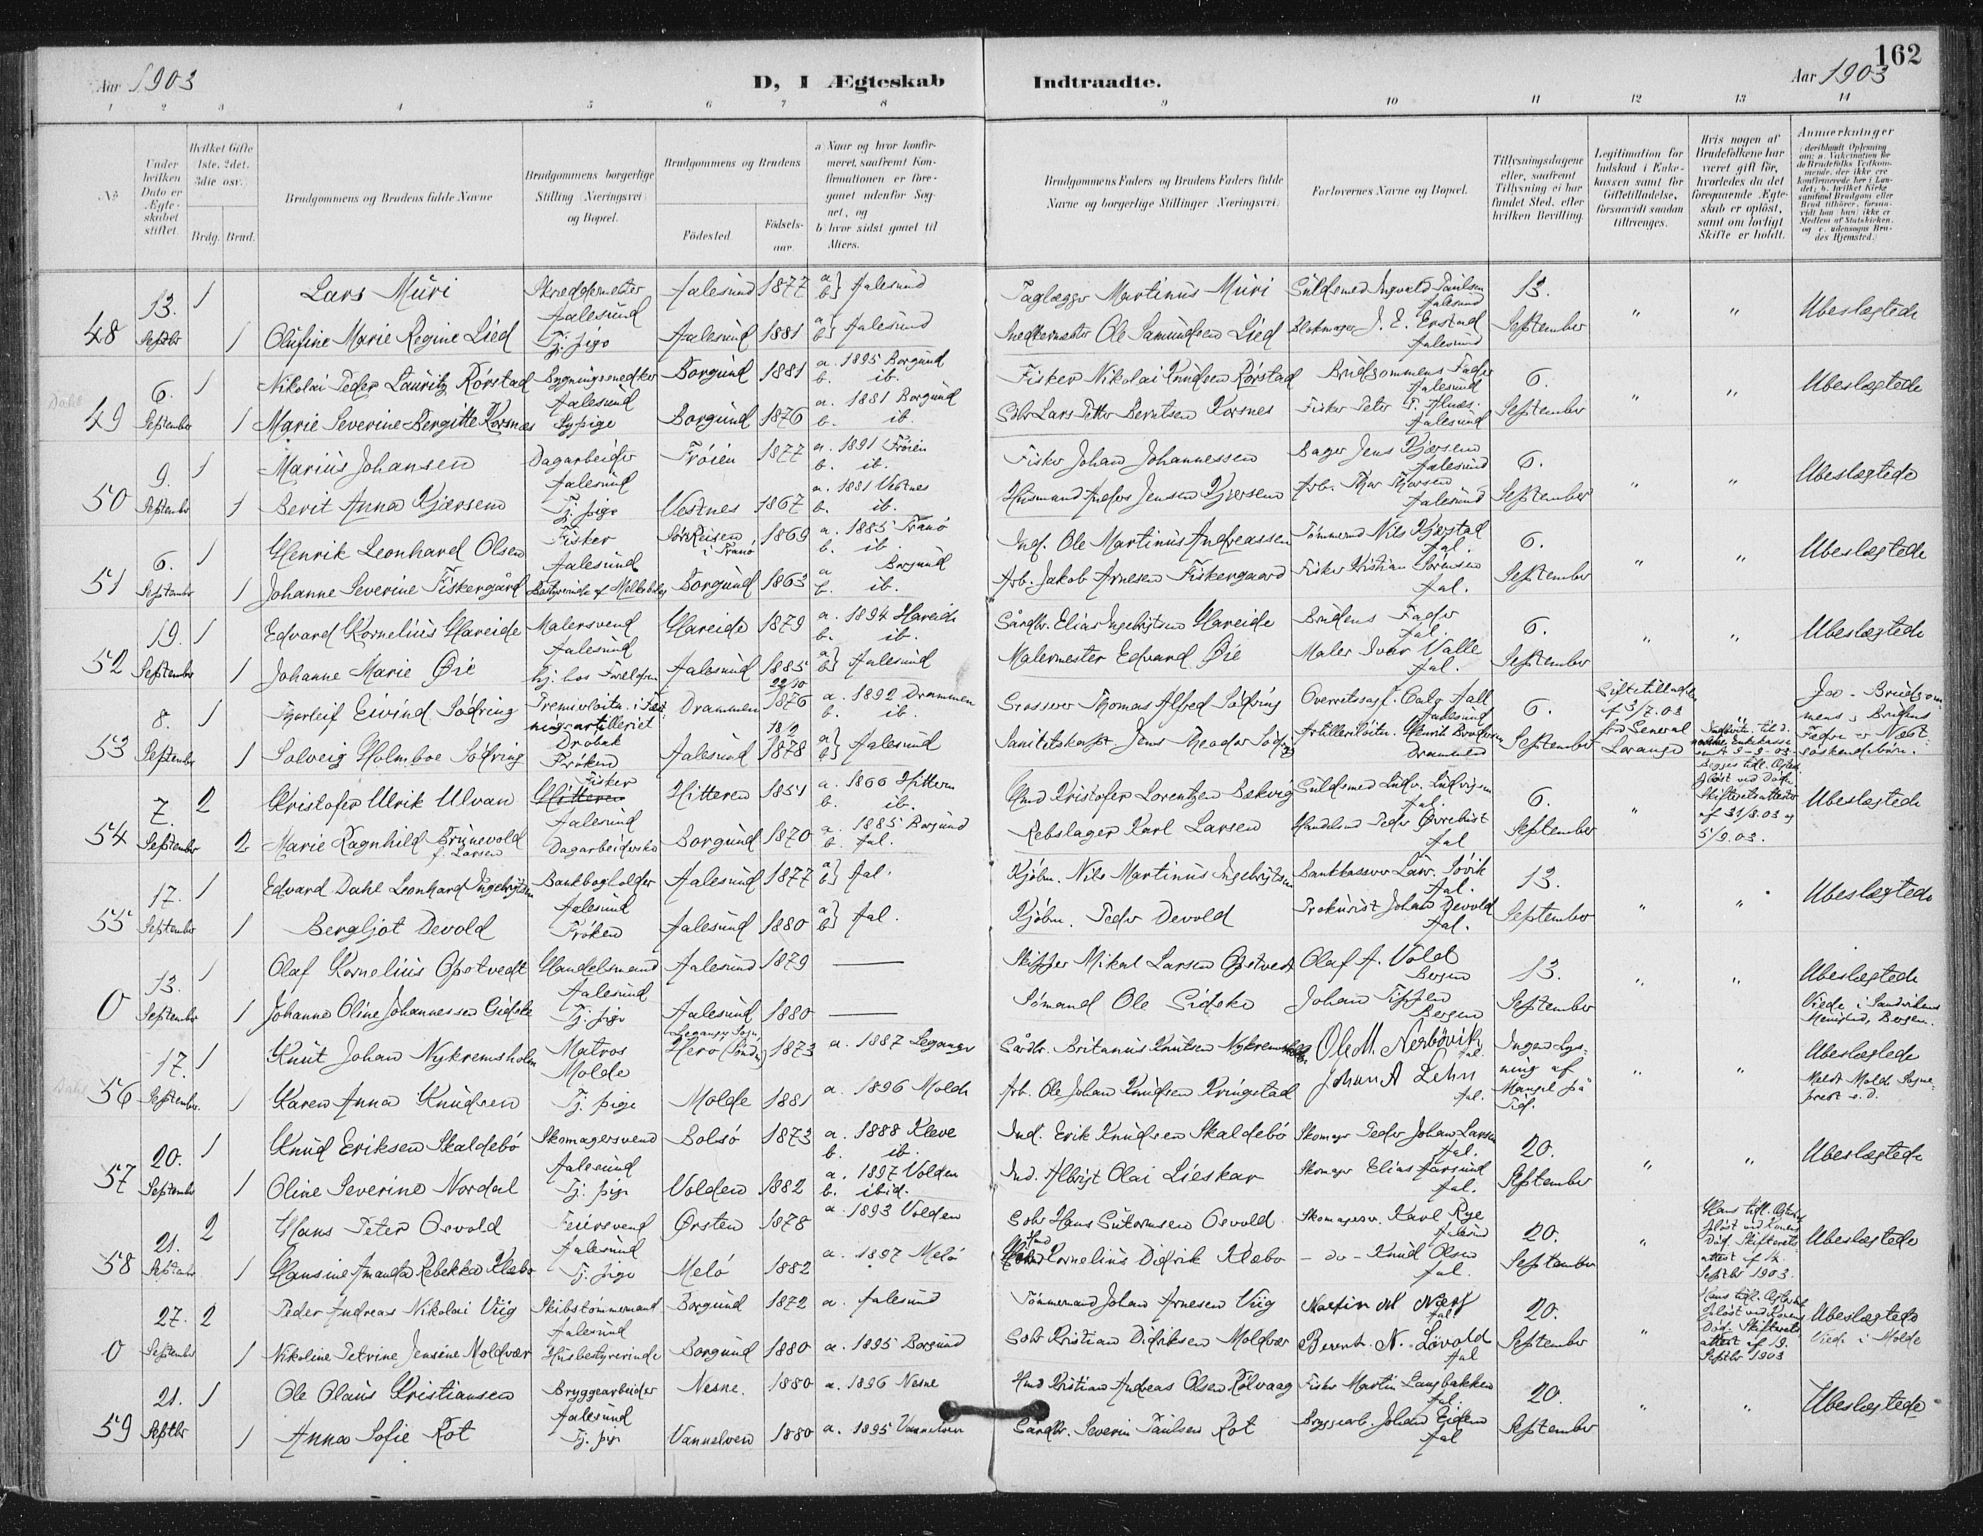 162
Aar 1903
D, I Ægteskab Indtraadte.
Aar 1903
1 2 3 4 5 6 7 8 9 10 11 12 13 14
No
Under hvilken Dato er Ægteskabet stiftet.
Hvilket Gifte 1ste, 2det, 3die osv.
Brdg. Brud.
Brudgommens og Brudens fulde Navne
Brudgommens borgerlige Stilling (Næringsvei) og Bopæl.
Brudgommens og Brudens
Fødested.
Fødselsaar.
a Naar og hvor konfirmeret, saafremt Konfirmationen er foregaaet udenfor Sognet, og
b hvor sidst gaaet til Alters.
Brudgommens Faders og Brudens Faders fulde Navne og borgerlige Stillinger (Næringsvei).
Forlovernes Navne og Bopæl.
Tillysningsdagene eller, saafremt Tillysning ei har fundet Sted, efter hvilken Bevilling.
Legitimation for Indskud i Enkekassen samt for Giftetilladelse, forsaavidt saadan tiltrænges.
Hvis nogen af Brudefolkene har været gift før, hvorledes da det foregaaende Ægteskab er opløst, samt om lovligt Skifte er holdt.
Anmærkninger
13. 1 Lars Muri Skræddermester Aalesund 1877 a} b} Aalesund Taglægger Martinus Muri Guldsmed Ingvald Paulsen Aalesund 13.
48 Septbr 1 Olufine Marie Regine Lied Aalesund Tj. pige Aalesund 1881 a} b} Aalesund Snedkermester Ole Samundsen Lied Blokmager J. E. Enstad Aalesund September " " Ubeslægtede
6. 1 Nikolai Peder Lauritz Rørstad Bygningssnedker Borgund 1881 a. 1895 Borgund b. ib. Fisker Nikolai Knudsen Rørstad Brudgommens Fader Aalesund 6.
49 September 1 Marie Severine Bergitte Korsnes Aalesund Sypige Borgund 1876 a. 1881 Borgund b. ib. Selv Lars Petter Berntsen Korsnes Fisker Peter Aalesund September " " Ubeslægtede
9. 1 Marius Johansen Dagarbeider Frøien 1877 a. 1891 Frøien b. ib. Fisker Johan Johannessen Bager Jens Kjærsem Aalesund 6.
50 September 1 Berit Anna Kjærsem Aalesund Tj. pige Vestnes 1867 a. 1881 Vestnes b. ib. Husmand Anders Jensen Kjærsem Arb. Aalesund September " " Ubeslægtede
6. 1 Henrik Leonhard Olsen Fisker Sør Reisen i Tranø 1869 a. 1885 Tranø b. ib. Ind. Ole Martinus Andreassen Tømmermd Nils Kjærstad Aal. 6.
51 September 1 Johanne Severine Fiskergård Aalesund Bestyrerinde af Melkebod Borgund 1863 a Borgund b. ib. Arb. Jakob Arnesen Fiskergaard Fisker Kristian Sørensen Aal. September " " Ubeslægtede
19. 1 Edvard Kornelius Hareide Malersvend Hareide 1879 a. 1894 Hareide b. ib. Gårdbr. Elias Ingebrigtsen Hareide Brudens Fader Aal. 6.
52 September 1 Johanne Marie Øie Aalesund hj. hos Forældrene Aalesund 1885 a} b} Aalesund Malermester Edvard Øie Maler Ivar Valle Aal. September " " Ubeslægtede
8. 1 Thorleif Eivind Sødring Premierløitn. i Fæstningsartilleriet Drammen 22/10 1876 a. 1892 Drammen b. ib. Grosserer Thomas Alfred Sødring Overretssagf. Aall Aalesund 6. Giftetilladelse 3/7.03 fra General Lorange
53 September 1 Solveig Holmboe Sødring Drøbak Frøken Aalesund 18/2 1878 a} b} Aalesund Sanitetskapt Jens Theodor Sødring Artilleriløitn. Henrik Drammen September Ja - Brudgommens & Brudens Fædre er Næstsøskendebørn.
7. 2 Kristofer Ulrik Ulvan Fisker Hitteren Hitteren 1851 a. 1866 Hitteren b. ib. Gmd Kristofer Lorentzen Bekvig Guldsmed Ludv. Ludvigsen Aal. 6.
54 September 2 Marie Ragnhild Brunevold f. Larsen Aalesund Dagarbeiderske Borgund 1870 a. 1885 Borgund b. Aal. Rebslager Karl Larsen Handlsmd Peder Aal September " Begges tidl. Ægtesk. opløst ved Død. Skifteretsattester af 31/8.03 og 5/9.03. Ubeslægtede
17. 1 Edvard Dahl Leonhard Ingebrigtsen Bankbogholder Aalesund 1877 a} b} Aal. Kjøbm. Nils Martinus Ingebrigtsen Bankkasserer Laur. Søvik Aal. 13.
55 September 1 Bergljot Devold Aalesund Frøken Aalesund 1880 a} b} Aal. Kjøbm. Peder Devold Prokurist Johan Devold Aal. September " " Ubeslægtede
13. 1 Olaf Kornelius Opstvedt Handelsmand Aalesund 1879 — Skipper Mikal Larsen Opstvedt Olaf A. Vold Bergen 13.
0 September 1 Johanne Oline Johannessen Gidske Aalesund Tj. pige Aalesund 1880 — Sømand Ole Gidske Johan Bergen September " " Ubeslægtede Viede i Sandvikens Menighed, Bergen.
17. 1 Knut Johan Nykremsholm Matros Herø 1873 a. 1887 Leganger Gårdbr. Britanus Knutsen Nykremsholm Ole M. Nerbövik Aal. Ingen Lysning af Mangel på Tid.
56 September. 1 Karen Anna Knudsen Molde Tj. pige Molde 1881 a. 1896 Molde Arb. Ole Johan Knudsen Kringstad Johan A Lehn Aal. " " Ubeslægtede Meldt Molde Sogneprest s. D.
20. 1 Knud Eriksen Skaldebö Skomagersvend Bolsø 1873 a. 1888 Kleve b. ib. Ind. Erik Knudsen Skaldebø Skomager Peder Johan Larsen Aal. 20.
57 September 1 Oline Severine Nordal Aalesund Tj. pige Volden 1882 a. 1897 Volden b. ibid. Ind. Albrigt Olai Lieskar Skomager Elias Aarsund Aal. September " " Ubeslægtede
21. 2 Hans Peter Osvold Feiersvend Ørsten 1878 a. 1893 Volden Selv Hans Osvold Skomagersv. Karl Rye Aalesund 20.
58 Septbr 1 Hansine Amanda Rebekka Klæbo Aalesund Tj. pige Melö 1882 a. 1897 Melö Kornelius Didrik Klæbo - do - Knud Olsen Aal. September " Hans tidl. Ægtesk. opløst ved Konens Død. Skifterets attest af Septbr 1903. Ubeslægtede
27. 2 Peder Andreas Nikolai Viig Skibstömmermand Borgund 1872 a. Aalesund Tømmermd Johan Arnesen Viig Martin M Aal 20.
0 September 1 Nikoline Petrine Jensine Moldvær Aalesund Husbestyrerinde Borgund 1880 a. 1895 Borgund Selv Kristian Didriksen Moldvær Berent N. Lövold Aal September " Hans tidl. Ægtesk. opløst ved Konens Død. Skifterets attest af 19. Septbr 1903 Ubeslægtede Viede i Molde
21. 1 Ole Olaus Kristiansen Bryggearbeider Nesne. 1880 a. 1896 Nesne Hmd Kristian Andreas Olsen Rølvaag Fisker Martin Langbakken Aal. 20.
59 Septbr 1 Anna Sofie Rot Aalesund Tj. pige Vannelven 1880 a. 1895 Vannelven Gårdbr. Severin Paulsen Rot Bryggearb. Johan Eiden Aal September " " Ubeslægtede